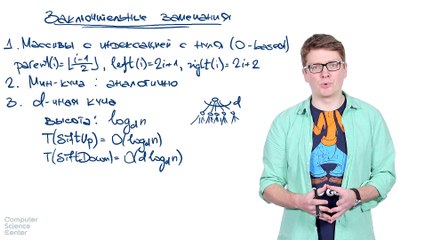 Заключительные замечания
1. Массивы с индексацией с нуля (0-based)
parent(i) = ⌊(i-1)/2⌋, left(i) = 2i+1, right(i) = 2i+2
2. Мин-куча : аналогично
3. d-ичная куча
d
высота: log_d n
T(SiftUp) = O(log_d n)
T(SiftDown) = O(d log_d n)
Computer
Science
Center